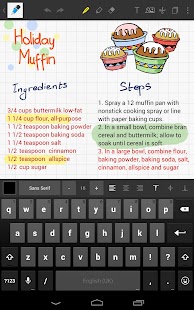 Holiday
Muffin
Ingredients
Steps
3/4 cups buttermilk low-fat
1 1/4 cup flour, all-purpose
1 1/2 teaspoon baking powder
1/2 teaspoon baking soda
1/2 teaspoon salt
1/2 teaspoon cinnamon
1/2 teaspoon allspice
1/2 cup brown sugar
1. Spray a 12 muffin pan with
nonstick cooking spray or line
with paper baking cups.
2. In a small bowl, combine bran
cereal and buttermilk; allow to
soak until cereal is soft.
3. In a large bowl, combine flour,
baking powder, baking soda, salt,
cinnamon, allspice and sugar
Sans Serif
q w e r t y u i o p
a s d f g h j k l
z x c v b n m ! ?
?123
English (UK)